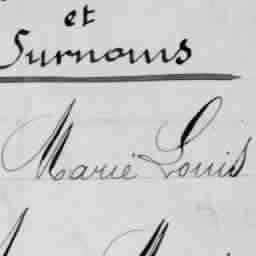 et
Surnoms
Marie Louis